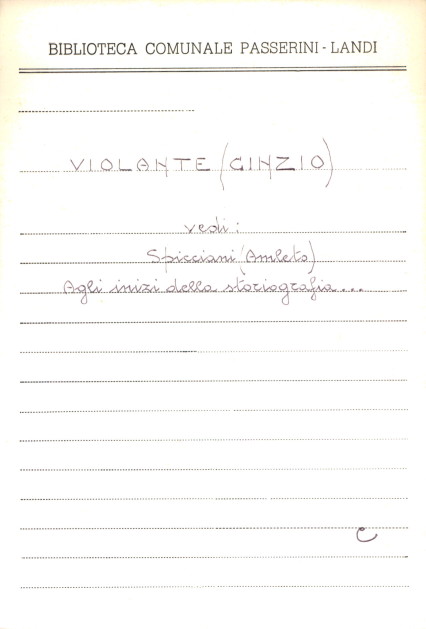 BIBLIOTECA COMUNALE PASSERINI - LANDI
VIOLANTE (CINZIO)
vedi:
Spicciani (Amleto)
Agli inizi della storiografia...
C